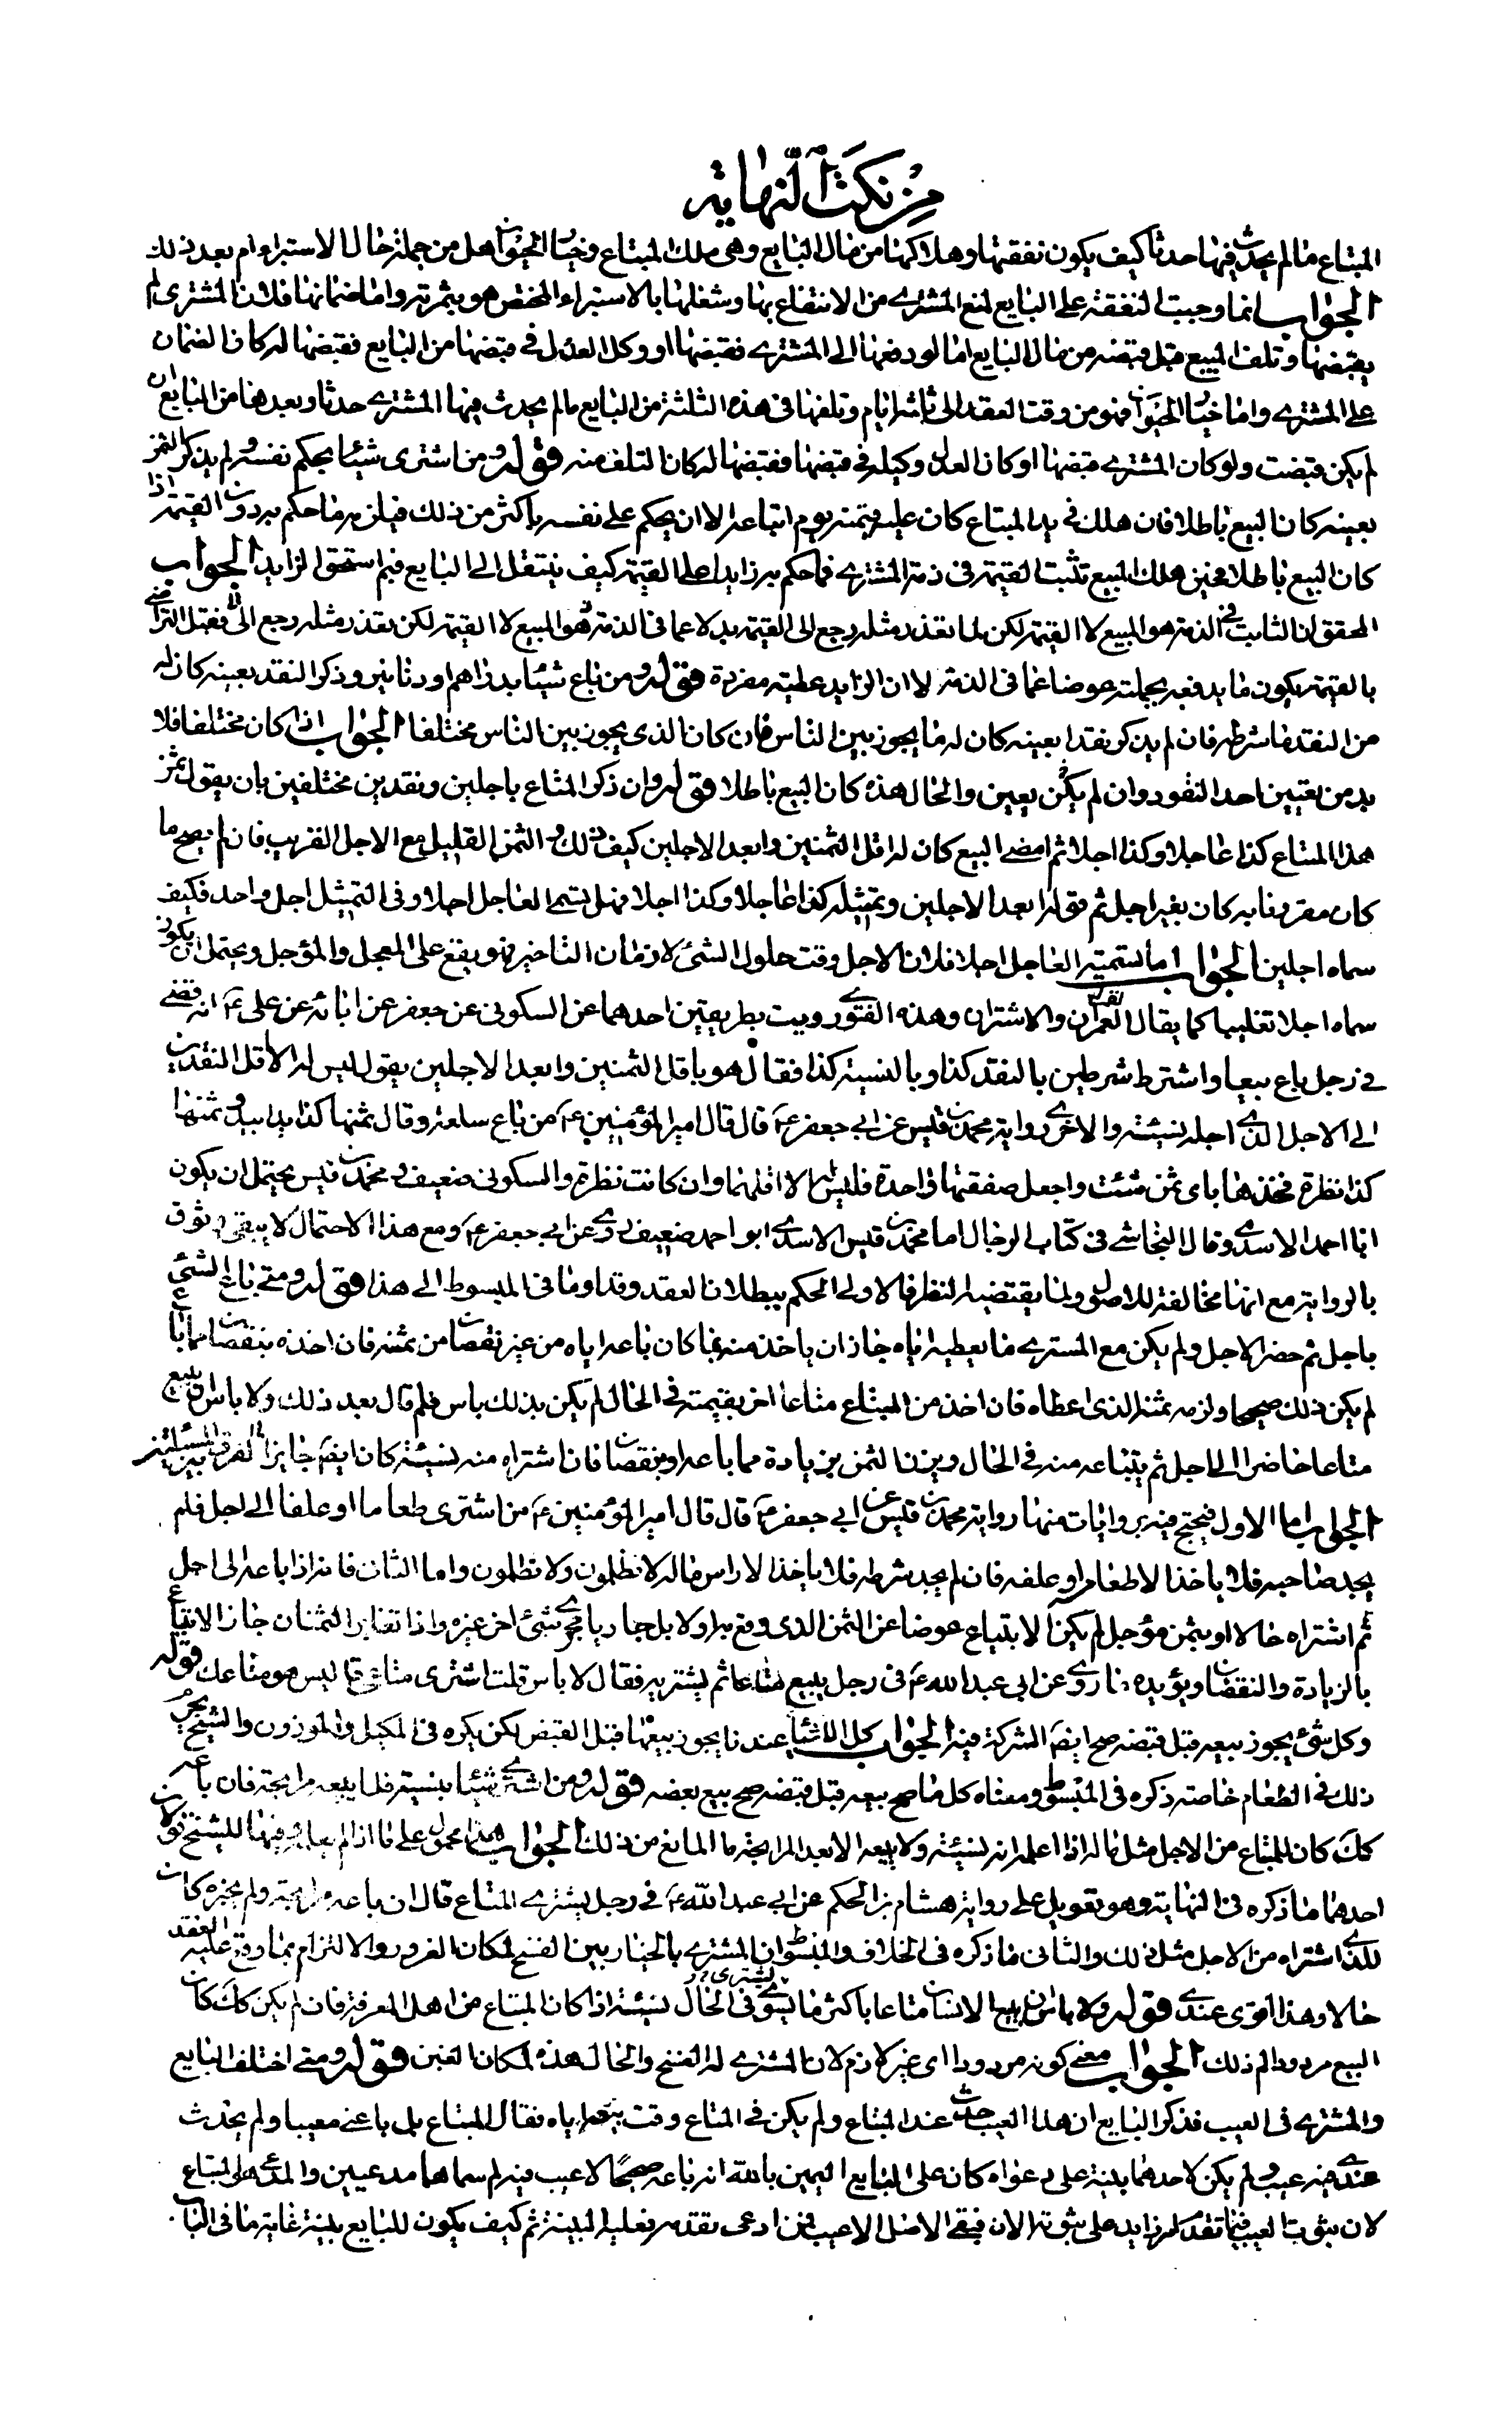 من نكت النهاية
المبتاع ما لم يحدث فيها حدثا كيف يكون نفقتها وهلاكها من مال البايع وهى ملك المبتاع وخيار الحيوان هل من جملة حال الاستبراء ام بعد ذلك
الجواب انما وجبت النفقة على البايع لمنع المشترى من الانتفاع بها وشغلها بالاستبراء المختص هو بثمرته واما ضمانها فلان المشترى لم
يقبضها وتلف المبيع قبل قبضه من مال البايع اما لو دفعها الى المشترى فقبضها او وكل العدل فى قبضها من البايع فقبضها له كان الضمان
على المشترى واما خيار الحيوان فهو من وقت العقد الى ثلثة ايام وتلفها فى هذه الثلثة من البايع ما لم يحدث فيها المشترى حدثا وبعدها من البايع ان
لم يكن قبضت ولو كان المشترى قبضها او كان العدل وكيله فى قبضها فقبضها له كان التلف منه قوله ومن اشترى شيئا بحكم نفسه ولم يذكر الثمن
بعينه كان البيع باطلا فان هلك فى يد المبتاع كان عليه قيمته يوم ابتاعه الا ان يحكم على نفسه باكثر من ذلك فيلزمه ما حكم به دون القيمة اذا
كان البيع باطلا فحين هلك المبيع تثبت القيمة فى ذمة المشترى فما حكم به زايدا على القيمة كيف ينتقل الى البايع فبم استحق الزايد الجواب
المحقق ان الثابت فى الذمة هو المبيع لا القيمة لكن لما تعذر مثله رجع الى القيمة بدلا عما فى الذمة هو المبيع لا القيمة لكن تعذر مثله رجع الى فقبل التراضى
بالقيمة يكون ما يدفعه بجملته عوضا عما فى الذمة لا ان الزايد عطية مفردة قوله ومن باع شيئا بدراهم او دنانير وذكر النقد بعينه كان له
من النقد ما شرطه فان لم يذكر نقدا بعينه كان له ما يجوز بين الناس فان كان الذى يجوز بين الناس مختلفا الجواب اذا كان مختلفا فلا
بد من تعيين احد النقود وان لم يكن يعين والحال هذه كان البيع باطلا قوله وان ذكر المتاع باجلين ونقدين مختلفين بان يقول ثمن
هذا المتاع كذا عاجلا وكذا اجلا ثم امضى البيع كان له اقل الثمنين وابعد الاجلين كيف ذلك والثمن القليل مع الاجل القريب فان لم يصح ما
كان مقرونا به كان بغير اجل ثم قوله ابعد الاجلين وتمثيله كذا عاجلا وكذا اجلا فهل يسمى العاجل اجلا وفى التمثيل اجل واحد فكيف
سماه اجلين الجواب اما تسمية العاجل اجلا فلان الاجل وقت حلول الشئ لا زمان التاخير فهو يقع على المعجل والمؤجل ويحتمل ان يكون
سماه اجلا تغليبا كما يقال العمران والاشتران وهذه الفتوى رويت بطريقين احدهما عن السكونى عن جعفر عن ابائه عن على ع انه قضى
فى رجل باع بيعا واشترط شرطين بالنقد كذا وبالنسية كذا فقال هو باقل الثمنين وابعد الاجلين يقول ليس له الا اقل النقدين
الى الاجل الذى اجله بنسيئة والاخرى رواية محمد بن قيس عن ابى جعفر ع قال قال امير المؤمنين ع من باع سلعة وقال ثمنها كذا يدا بيد وثمنها
كذا نظرة فخذها باى ثمن شئت واجعل صفقتها واحدة فليس له الا اقلهما وان كانت نظرة والسكونى ضعيف ومحمد بن قيس يحتمل ان يكون
ابا احمد الاسدى وقال النجاشى فى كتاب الرجال اما محمد بن قيس الاسدى ابو احمد ضعيف روى عن ابى جعفر ع ومع هذا الاحتمال لا يبقى وثوق
بالرواية مع انها مخالفة للاصول ولما يقتضيه النظر فالاولى الحكم ببطلان العقد وقد اوما فى المبسوط الى هذا قوله ومتى باع الشئ
باجل ثم حضر الاجل ولم يكن مع المشترى ما يعطيه اياه جاز ان ياخذ منه بما كان باعه اياه من غير نقصان من ثمنه فان اخذه بنقصان مما باع
لم يكن ذلك صحيحا ولزمه ثمنه الذى اعطاه فان اخذ من المبتاع متاعا اخر بقيمته فى الحال لم يكن بذلك باس فلم قال بعد ذلك ولا باس ان يبيع
متاعا حاضرا الى اجل ثم يبتاعه منه فى الحال ويزن الثمن بزيادة مما باعه او بنقصان فان اشتراه منه بنسيئة كان ايضا جايزا ما الفرق بين المسئلتين
الجواب اما الاول فيحتج فيه بروايات منها رواية محمد بن قيس عن ابى جعفر ع قال قال امير المؤمنين ع من اشترى طعاما او علفا الى اجل فلم
يجد صاحبه فلا ياخذ الا طعامه او علفه فان لم يجد شرطه فلا ياخذ الا راس ماله لا تظلمون ولا تظلمون واما الثانى فانه اذا باعه الى اجل
ثم اشتراه حالا او بثمن مؤجل لم يكن الابتياع عوضا عن الثمن الذى وقع به اولا بل جاريا مجرى شئ اخر غيره واذا تغاير الثمنان جاز الابتياع
بالزيادة والنقصان ويؤيده ما روى عن ابى عبد الله ع فى رجل يبيع متاعا ثم يشتريه فقال لا باس قلت اشترى متاعى قال ليس هو متاعك قوله
وكل شئ يجوز بيعه قبل قبضه صح ايضا الشركة فيه الجواب كل الاشياء عندنا يجوز بيعها قبل القبض لكن يكره فى المكيل والموزون والشيخ يحرم
ذلك فى الطعام خاصة ذكره فى المبسوط ومعناه كل ما صح بيعه قبل قبضه صح بيع بعضه قوله ومن اشترى شيئا بنسية فلا يبيعه مرابحة فان باعه
كك كان للمبتاع من الاجل مثل ما له اذا اعلمه انه نسيئة ولا يبيعه الا بعد المرابحة ما المانع من ذلك الجواب هذا محمول على ما اذا لم يعلمه وفيها للشيخ قولان
احدهما ما ذكره فى النهاية وهو تعويل على رواية هشام بن الحكم عن ابى عبد الله ع فى رجل يشترى المتاع قال ان باعه مرابحة ولم يخبره كان
للذى اشتراه من الاجل مثل ذلك والثانى ما ذكره فى الخلاف والمبسوط ان المشترى بالخيار بين الفسخ لمكان الغرور والالتزام بما وقع عليه العقد
حالا وهذا اقوى عندى قوله ولا باس ان يبيع الانسان متاعا باكثر ما يسوى فى الحال بنسيئة اذا كان المبتاع من اهل المعرفة فان لم يكن كك كان
البيع مردودا لم ذلك الجواب معنى كونه مردودا اى غير لازم لان المشترى له الفسخ والحال هذه لمكان الغبن قوله ومتى اختلف البايع
والمشترى فى العيب فذكر البايع ان هذا العيب حدث عند المبتاع ولم يكن فى المتاع وقت بيعه اياه فقال المبتاع بل باعنى معيبا ولم يحدث
عندى فيه عيب ولم يكن لاحدهما بينة على دعواه كان على البايع اليمين بالله انه باعه صحيحا لا عيب فيه لم سماهما مدعيين والمدعى هو المبتاع
لان ثبوت العيب فيما تقدم امر زايد على ثبوته الان فيبقى الاصل الا عيب فمن ادعى تقدمه فعليه البينة ثم كيف يكون للبايع بينة غاية ما فى الباب